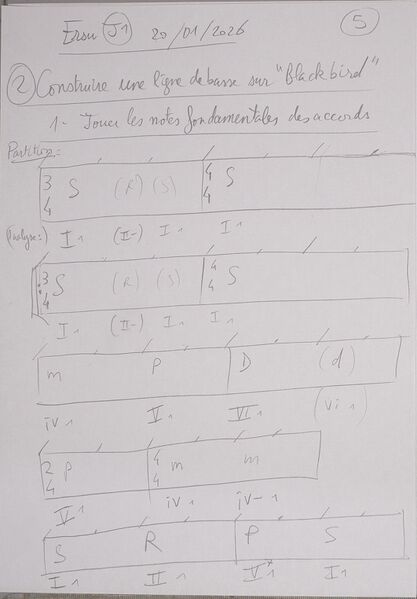 J1 20/01/2026 5
2 Construire une ligne de basse sur "Blackbird"
1- Jouer les notes fondamentales des accords
Partition:
3 4 S (R) (S) 4 4 S
(Analyse:) I 1 (II-) I 1 I 1
3 4 S (R) (S) 4 4 S
I 1 (II-) I 1 I 1
m P D (d)
iv 1 V 1 VI 1 (vi 1)
2 4 P 4 4 m m
V 1 iv 1 iv-1
S R P S
I 1 II 1 V* 1 I 1